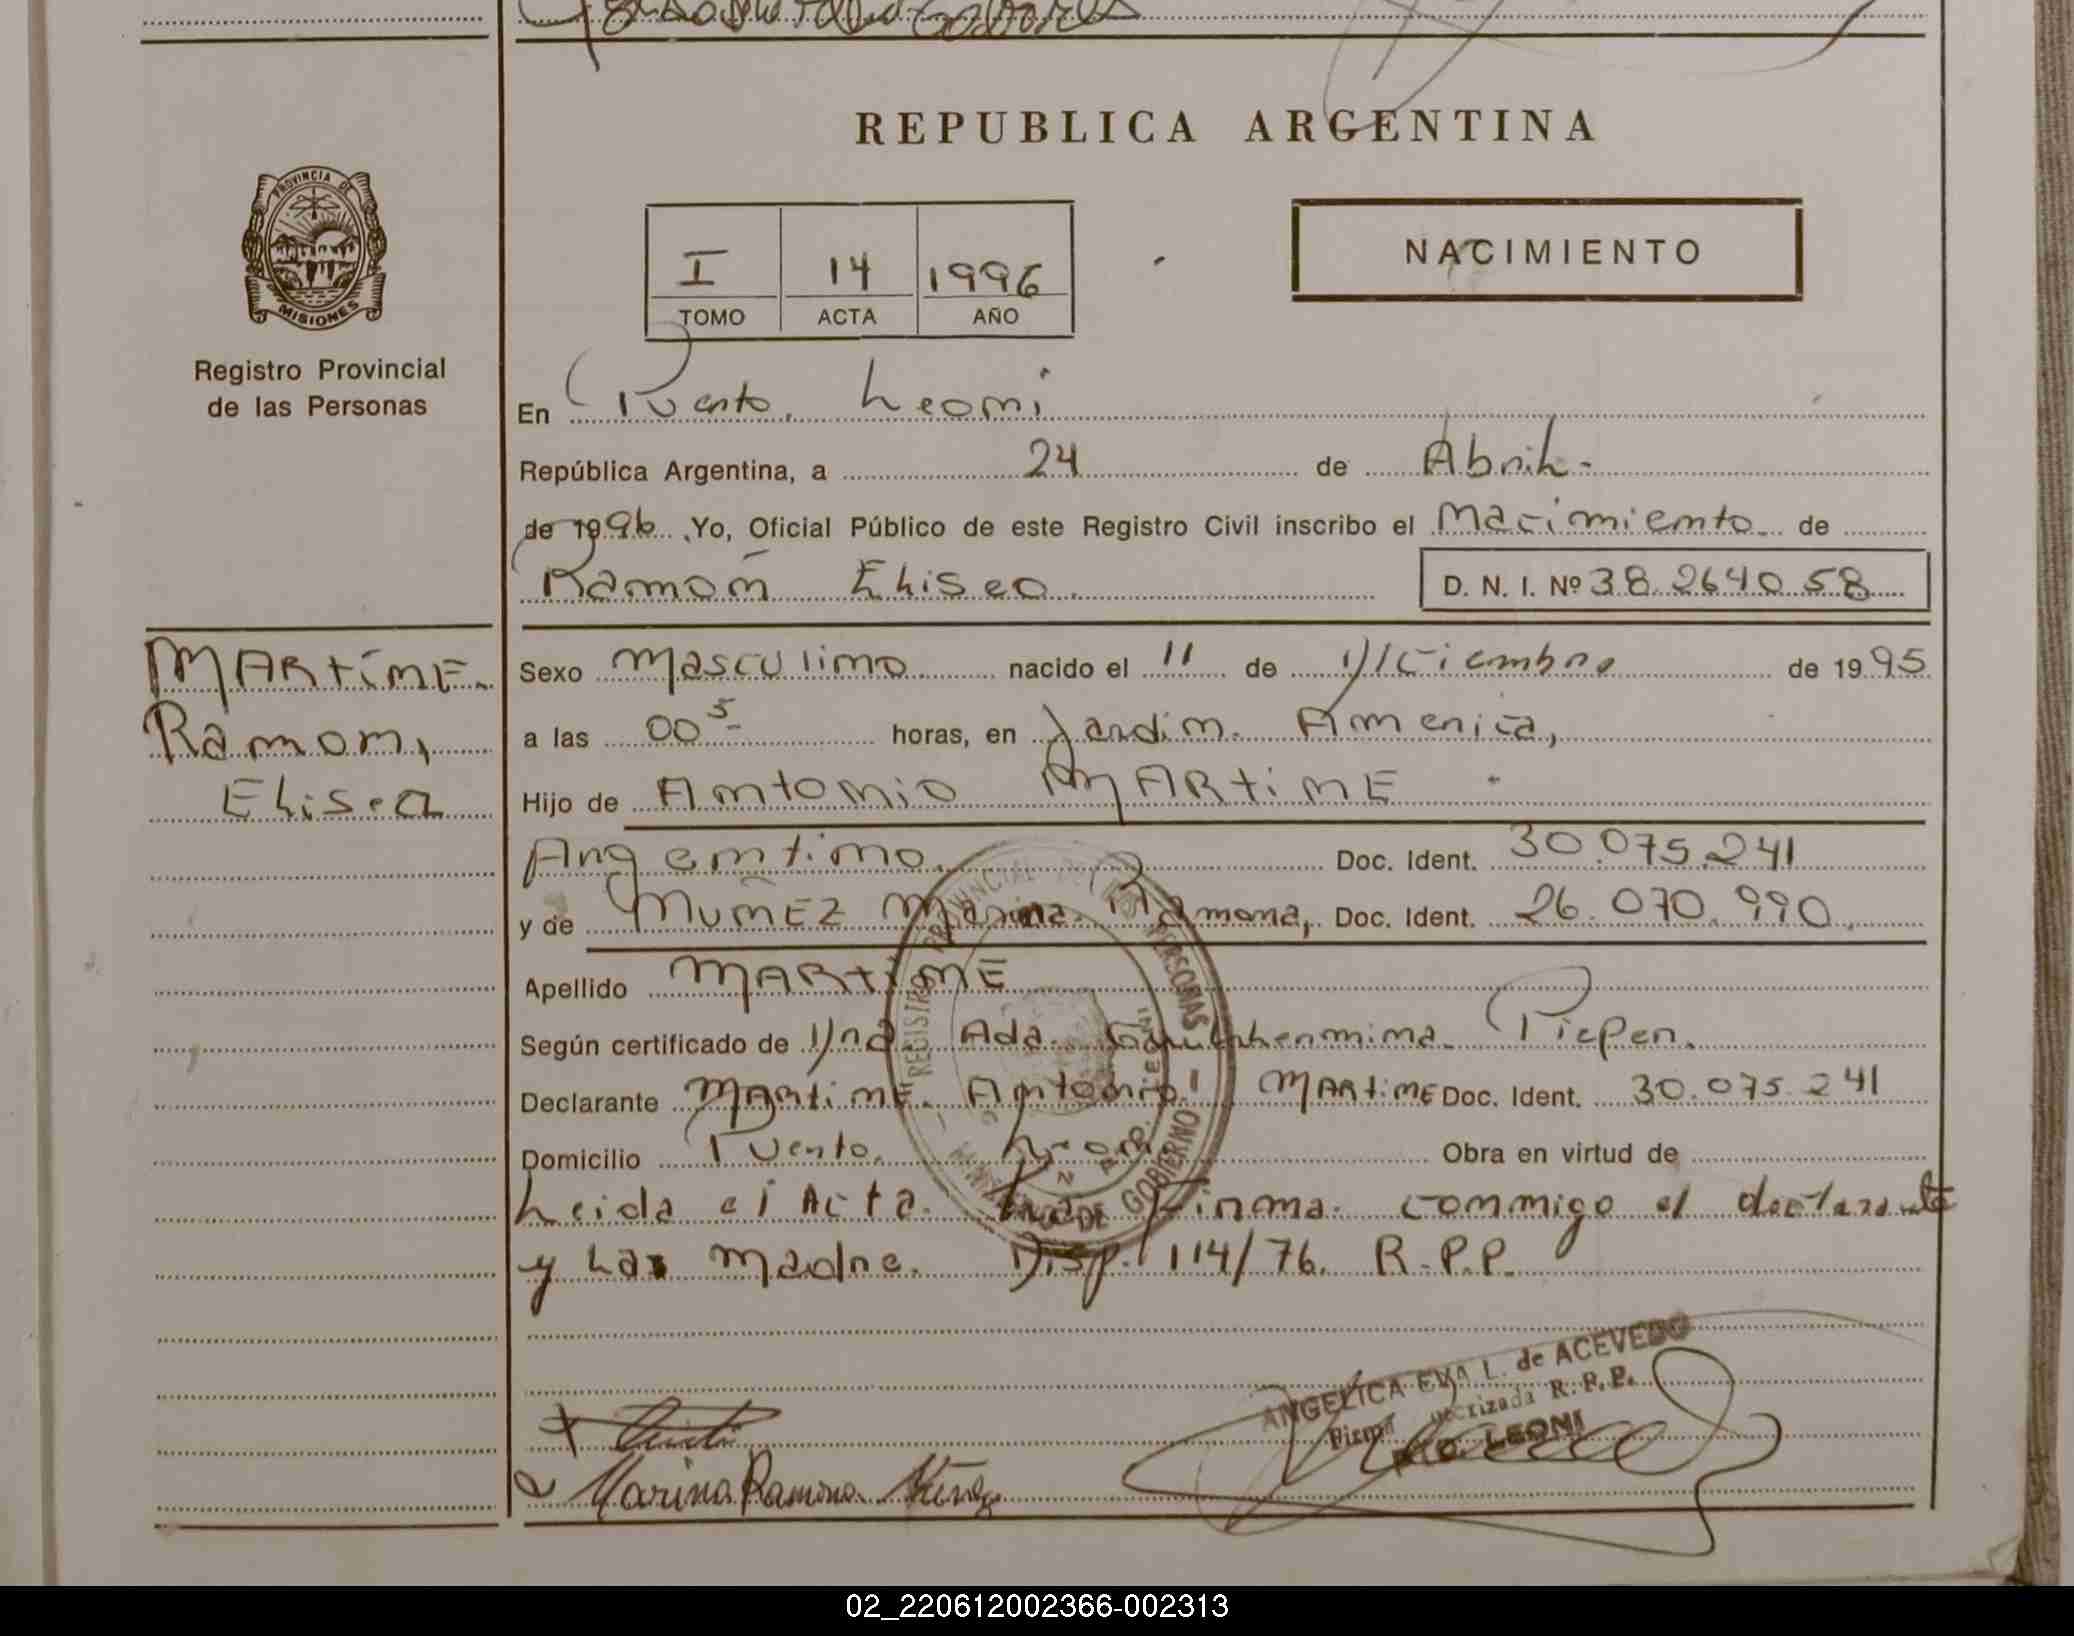 REPUBLICA ARGENTINA
PROVINCIA DE
MISIONES
Registro Provincial
de las Personas
I 14 1996
TOMO ACTA AÑO
NACIMIENTO
En Puerto Leoni
República Argentina, a 24 de Abril.
de 1996 Yo, Oficial Público de este Registro Civil inscribo el Nacimiento de
Ramón Eliseo D. N. I. Nº 38.264058
MARTíNE.
Ramon,
Eliseo
Sexo Masculino nacido el 11 de Diciembre de 1995
a las 00 5 horas, en Jardin America,
Hijo de Antonio MARtiNE
Argentino. Doc. Ident. 30.075.241
y de MUÑEZ Marina Ramona, Doc. Ident. 26.070.990
Apellido MARTiNE
Según certificado de Dra Ada Piepen.
Declarante MARtiNE. Antonio MARTiNE Doc. Ident. 30.075.241
Domicilio Puerto. Leoni Obra en virtud de
Leida el Acta. La Firma conmigo el declarante
y La madre. Disp. 114/76. R.P.P.
REGISTRO PROVINCIAL DE LAS PERSONAS
MIN. DE GOBIERNO
ANGELICA EVA L. de ACEVEDO
Firma R.P.P.
PTO. LEONI
Marina Ramona Núñez
02_220612002366-002313